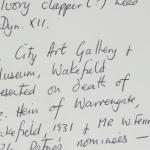 Ivory clapper (?) head
Dyn. XII.
City Art Gallery &
useum, Wakefield
esented on death of
. Hein of Warrengate,
akefield, 1931 & MR W. Fenn
nominees —